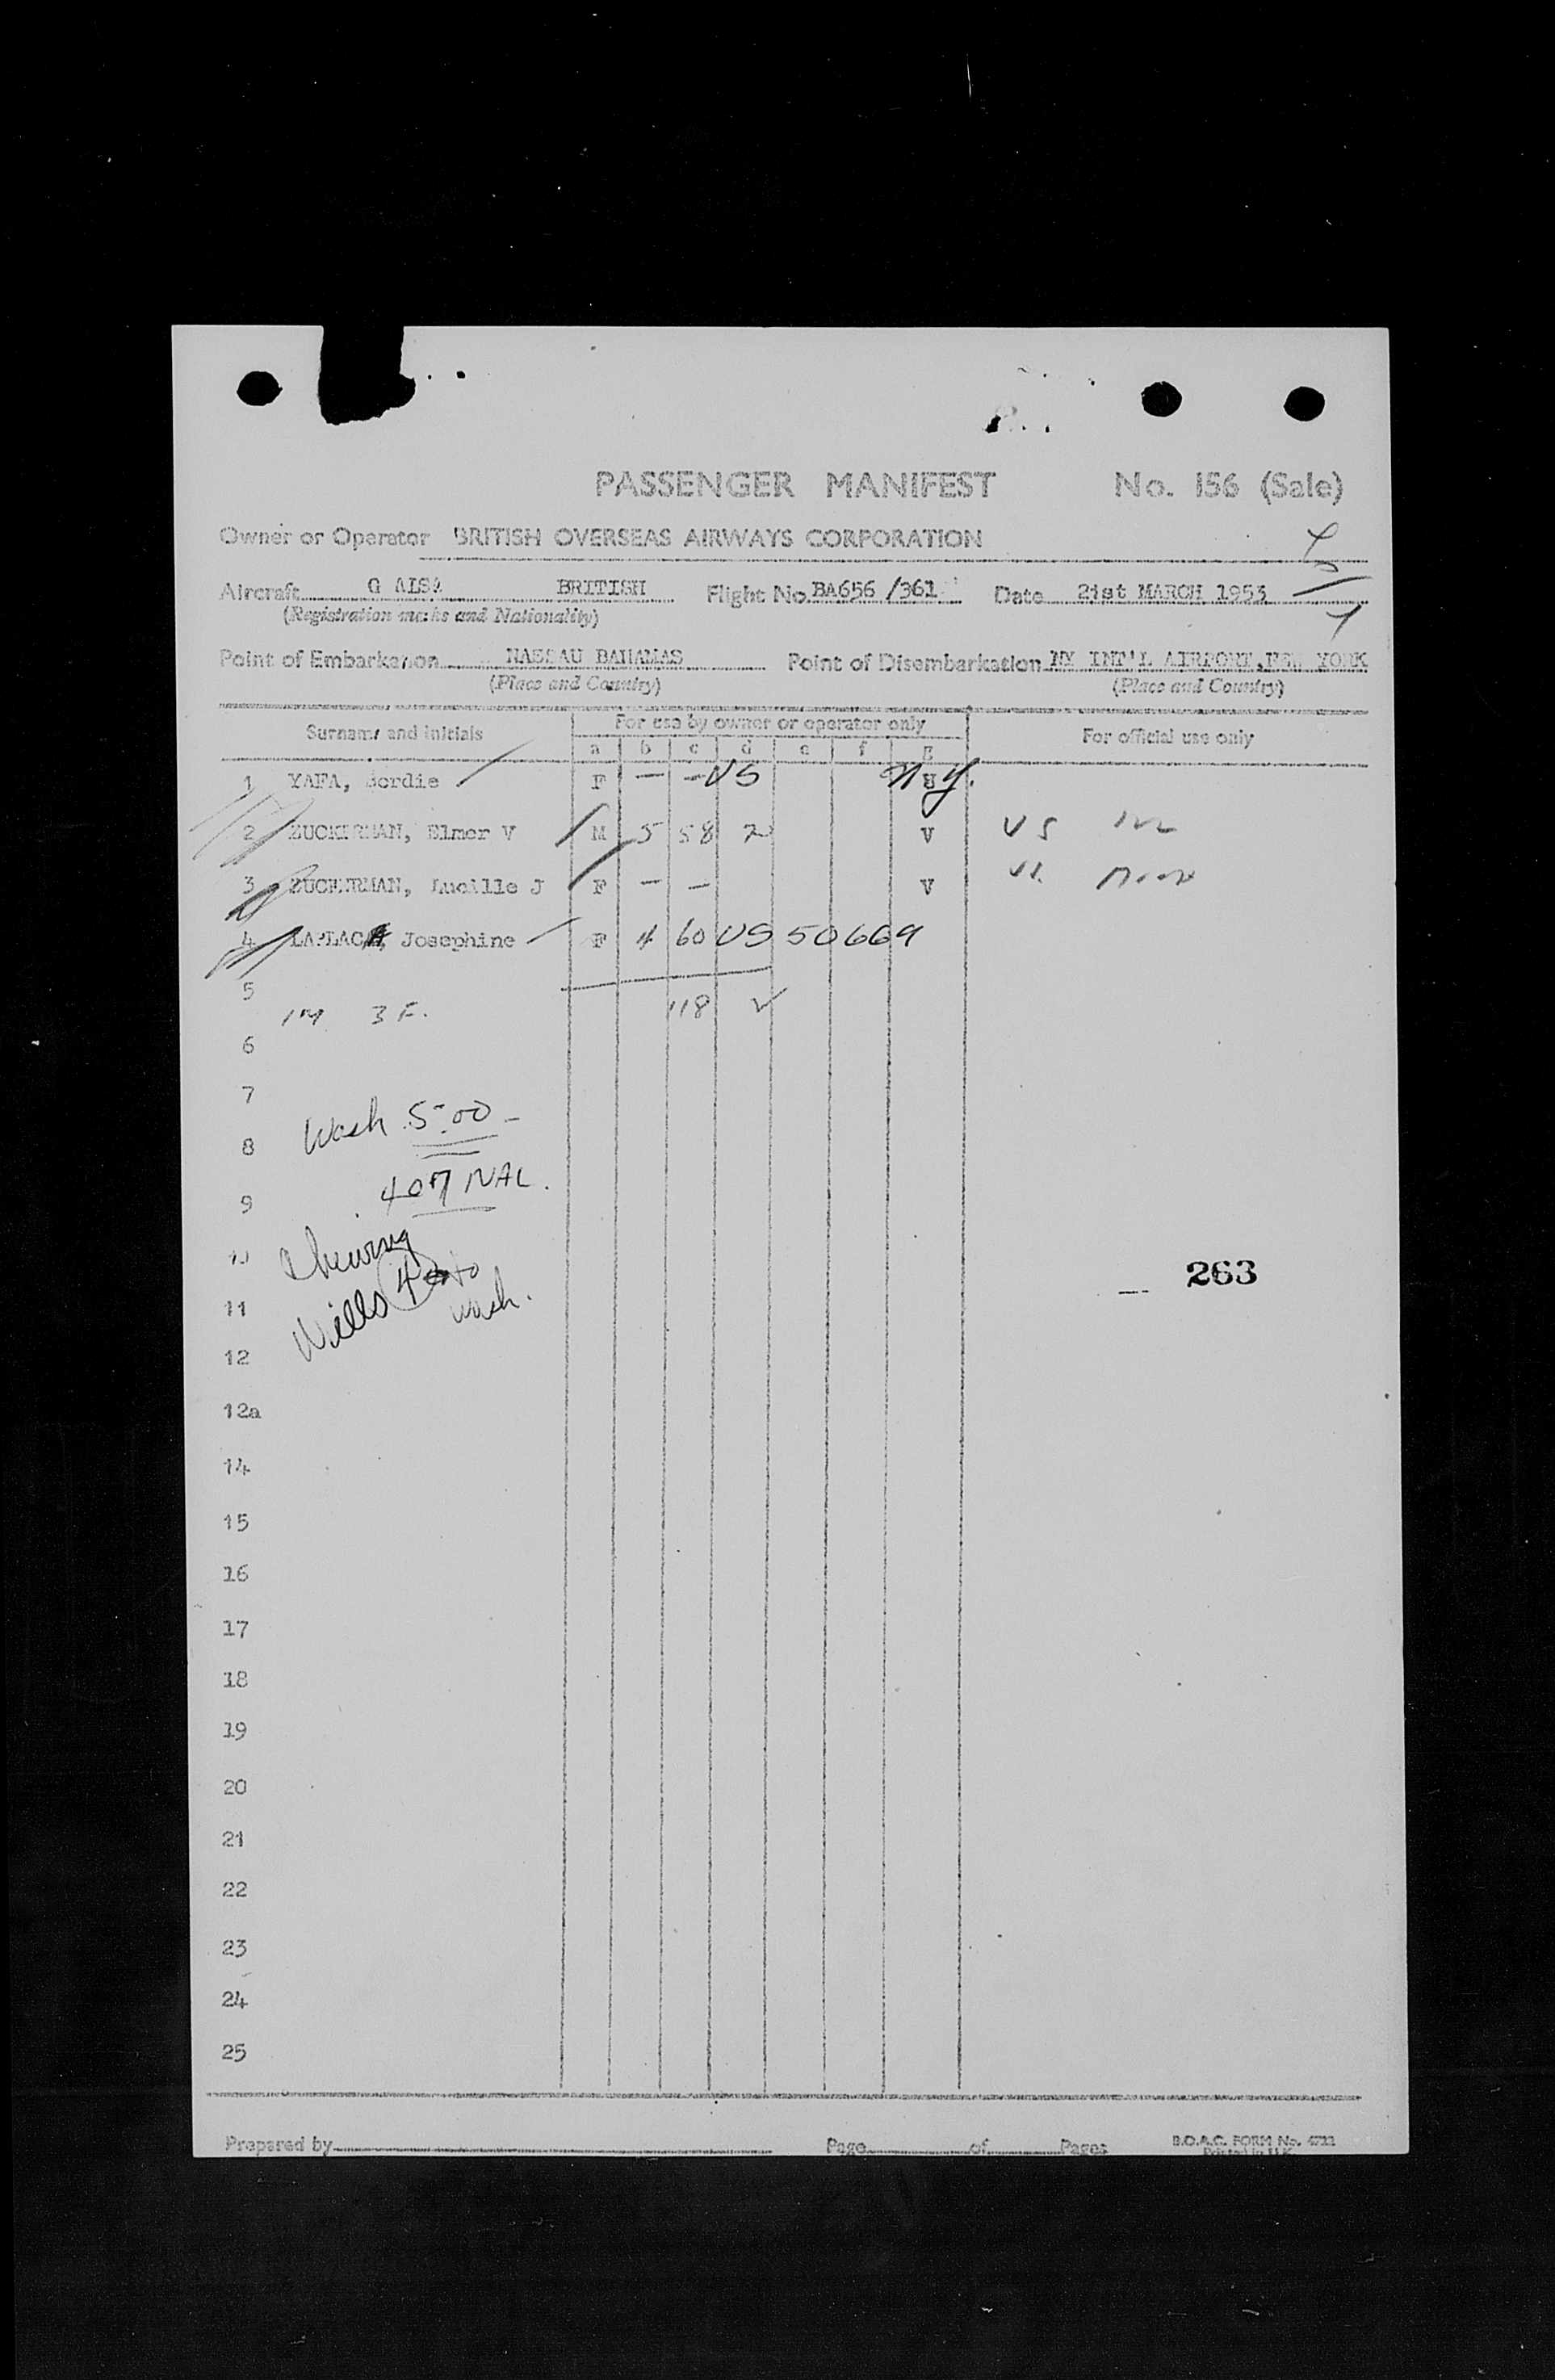 PASSENGER MANIFEST No. 156 (Sale)
Owner or Operator BRITISH OVERSEAS AIRWAYS CORPORATION
Aircraft G ALSA BRITISH Flight No. BA656 /361 Date 21st MARCH 1953
(Registration marks and Nationality)
Point of Embarkation NASSAU BAHAMAS Point of Disembarkation NY INT'L AIRPORT, NEW YORK
(Place and Country) (Place and Country)
Surname and initials For use by owner or operator only For official use only
a b c d e f g
1 YAFA, Gordie F — — US N Y.
2 ZUCKERMAN, Elmer V M 5 58 2 V US
3 ZUCKERMAN, Lucille J F — — V US
4 LAPLACA, Josephine F 4 60 US 50669
5
1M 3F. 118
6
7
Wash 5:00 -
8
407 NAL.
9
10
Wills 4 to
11 wash.
263
12
12a
14
15
16
17
18
19
20
21
22
23
24
25
Prepared by Page of Pages B.O.A.C. FORM No. 4711
Printed in U.K.